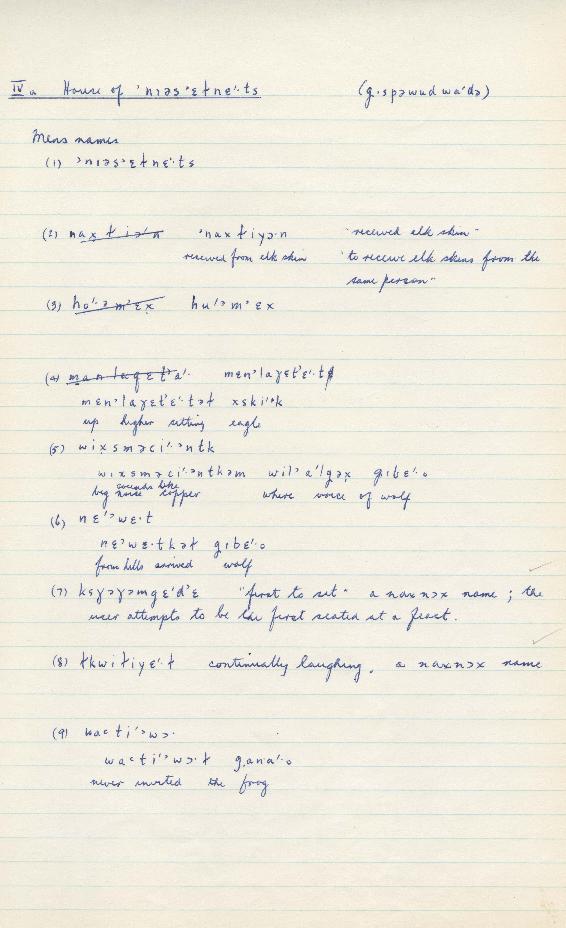 IV a House of 'nɪəs·ɛɫne'·ts (g̣·spəwudwa'də)
Mens names
(1) 'nɪəs·ɛɫne'·ts
(2) 'naxɫiyɔ·n "received elk skin"
received from elk skin "to receive elk skins from the
same person"
(3) hu'ɔm'ɛx
(4) mɛn'laɣɛt'ɛ'·t
mɛn'laɣɛt'ɛ'·tət xski'·k
up higher sitting eagle
(5) wixsməci'·ɔntk
wixsməci'·ɔntkəm wil'a'lgəx gɪbɛ'·o
sounds like
big noise copper where voice of wolf
(6) nɛ'ɔwɛ·t
nɛ'ɔwɛ·tkət gɪbɛ'·o
from hills arrived wolf
(7) ksɣəɣəmgɛ'd'ɛ "first to sit" a naxnɔx name ; the
user attempts to be the first seated at a feast.
(8) ɫkwiɫiyɛ'·ɫ continually laughing, a naxnɔx name
(9) wacti'ɔwɔ·
wacti'ɔwɔ·ɫ g̣ana'·o
never invited the frog